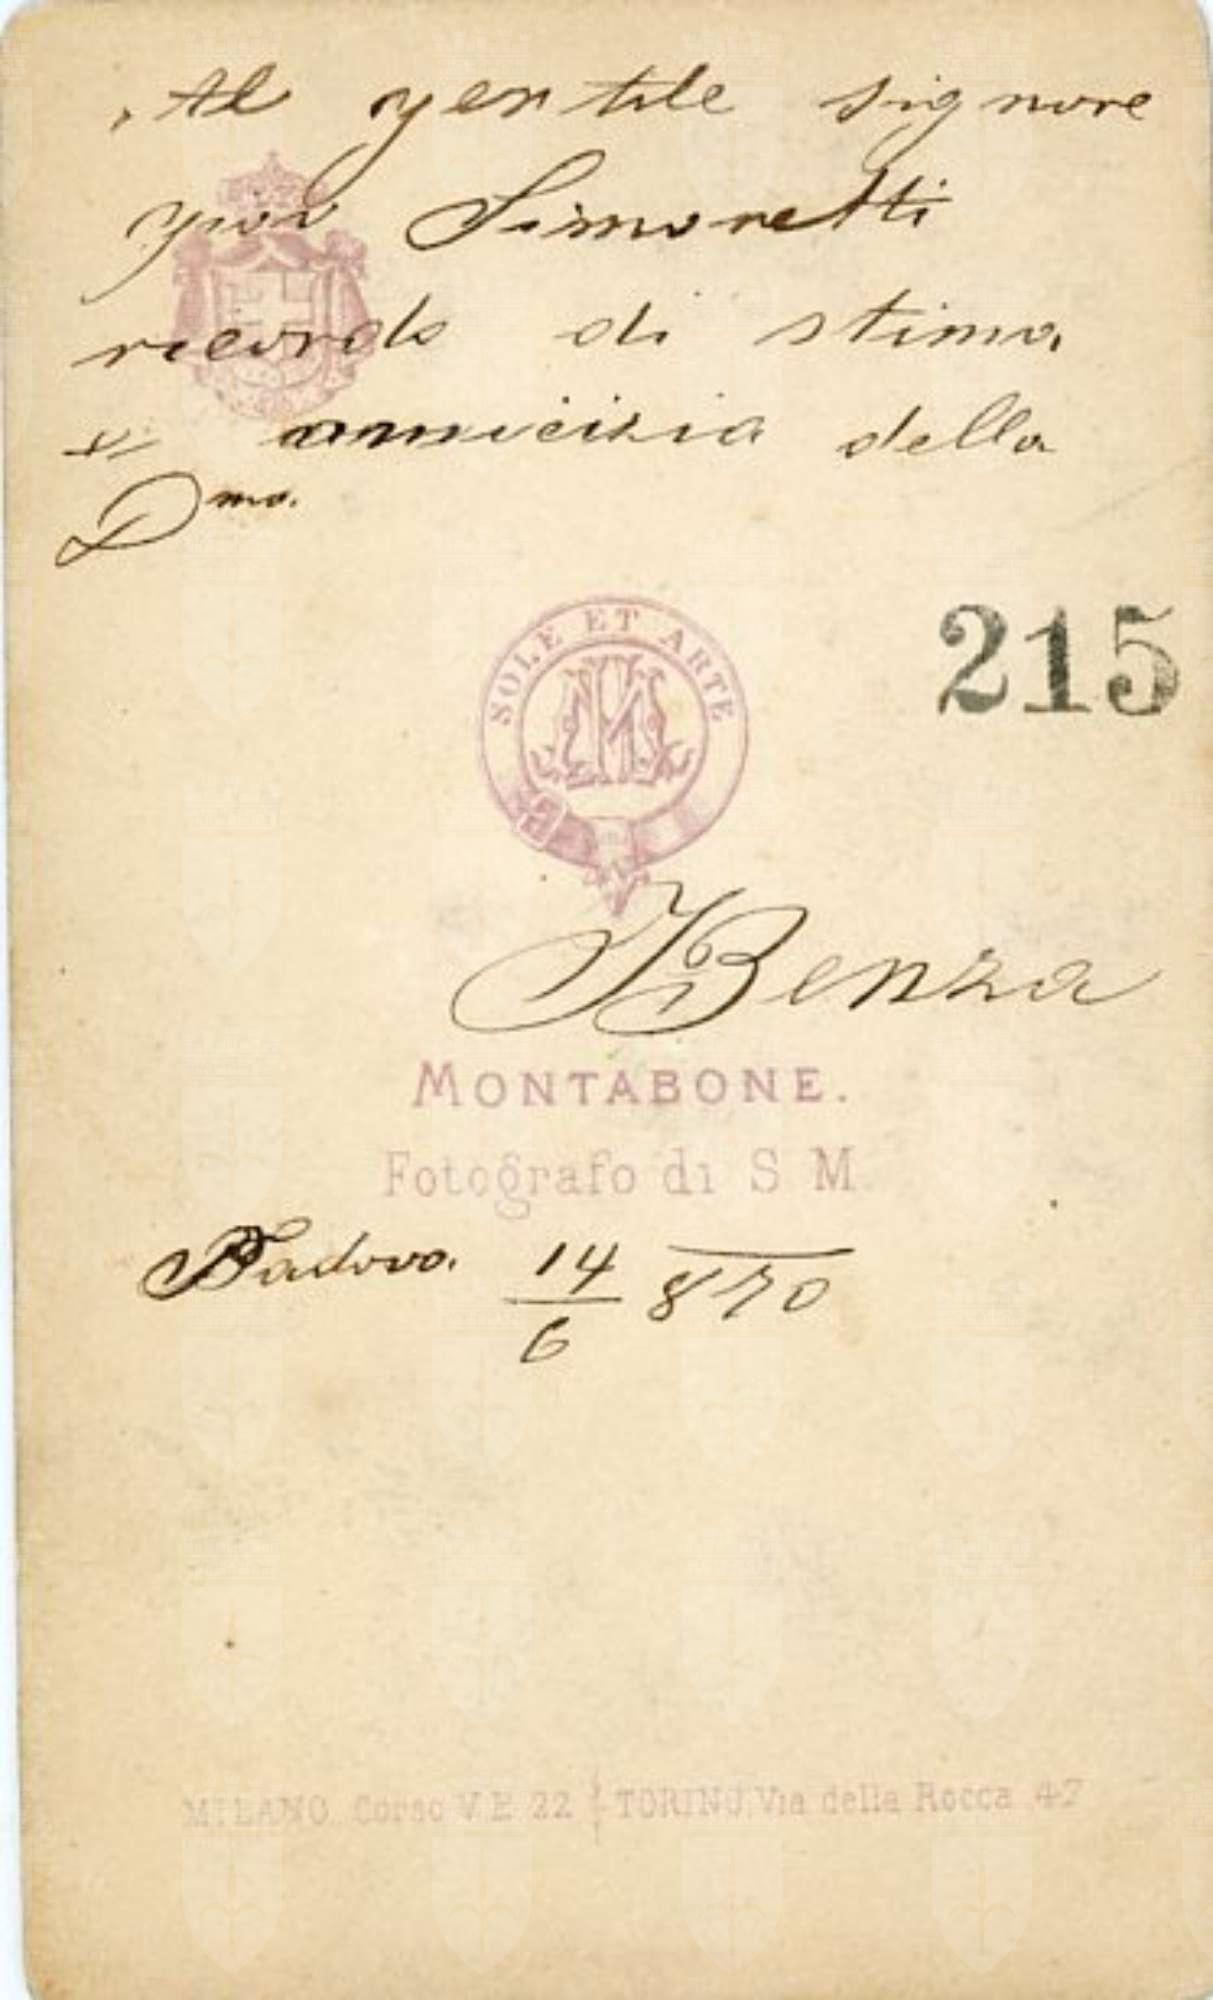 Al gentile signore
giov Simonetti
ricordo di stima
e amicizia della
Dma.
215
SOLE ET ARTE
M
IBenza
MONTABONE.
Fotografo di S M
Padova. 14/6 870
MILANO Corso V.E 22 TORINO Via della Rocca 47